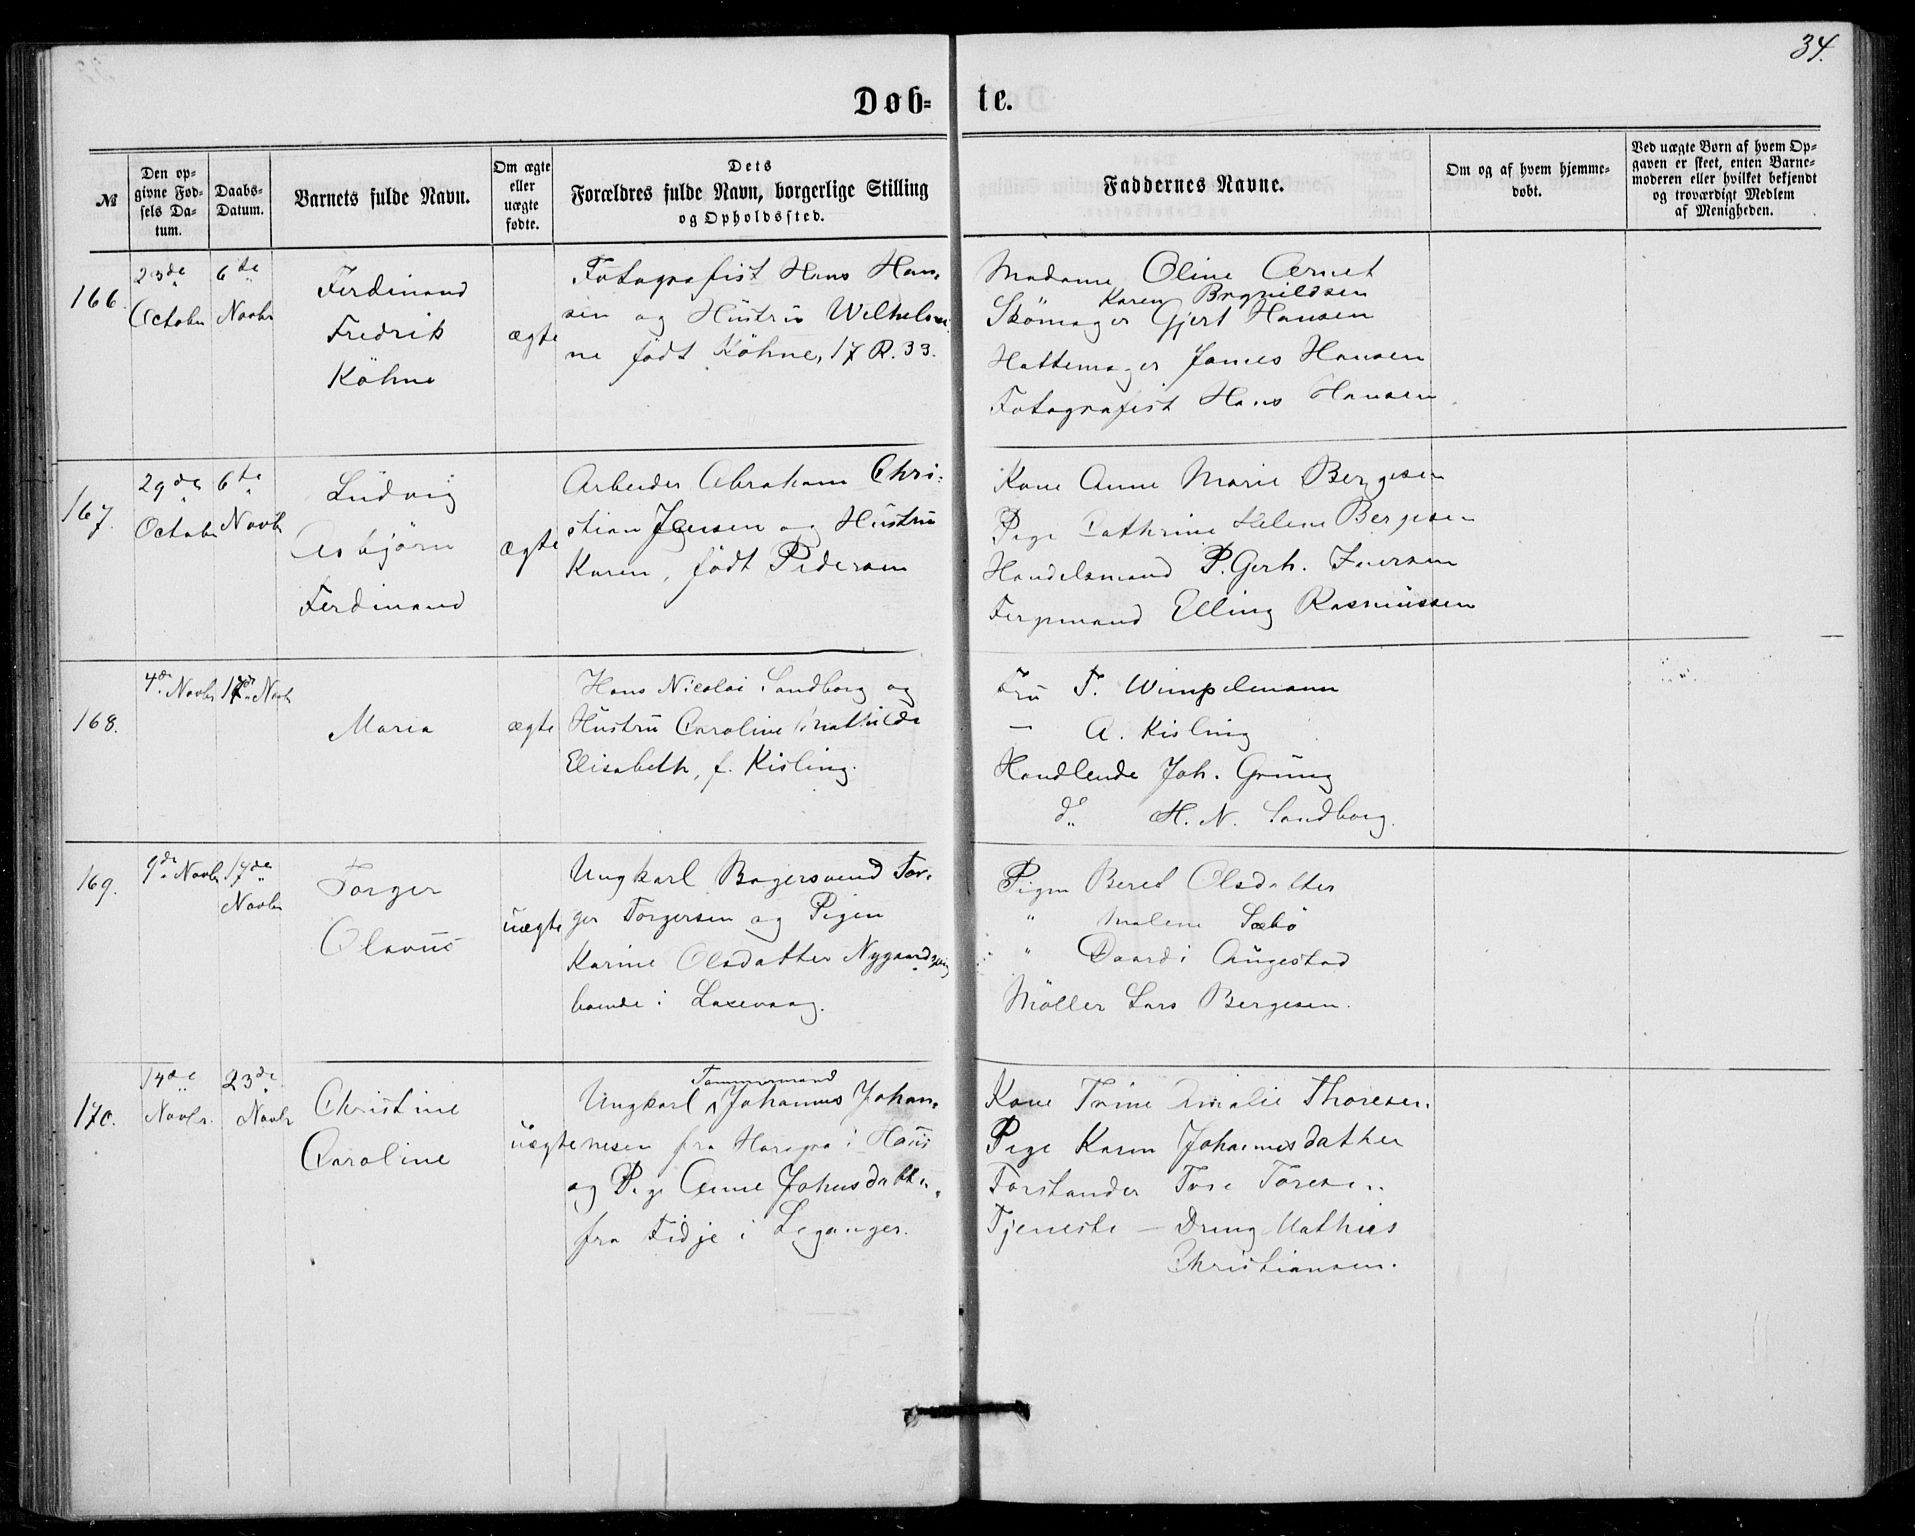 34.
Døb- te.
№
Den opgivne Fødsels Datum.
Daabs-Datum.
Barnets fulde Navn.
Om ægte eller uægte fødte.
Dets Forældres fulde Navn, borgerlige Stilling og Opholdssted.
Faddernes Navne.
Om og af hvem hjemmedøbt.
Ved uægte Børn af hvem Opgaven er skeet, enten Barnemoderen eller hvilket bekjendt og troværdigt Medlem af Menigheden.
166.
23de October
6te Novbr
Ferdinand
Fredrik
Köhne
ægte
Fotografist Hans Han-
sen og Hustru Wilhelmi-
ne født Köhne, 17 R. 33.
Madame Oline Arnet
Karen Brynildsen
Skömager Gjert Hansen
Hattemager James Hansen
Fotografist Hans Hansen
167.
29de Octobr
6te Novbr
Ludvig
Asbjörn
Ferdinand
ægte
Arbeider Abraham Chri-
stian Jensen og Hustru
Karen, født Pedersen
Kone Anne Marie Bergesen
Pige Cathrine Helene Bergesen
Handelsmand P. Gerh. Iversen
Fergemand Elling Rasmussen
168.
4de Novbr
17de Novb
Maria
ægte
Hans Nicolai Sandborg og
Hustru Caroline Mathilde
Elisabeth, f. Kisling.
Fru T. Wimpelmann
— A. Kisling
Handlende Joh. Grung
do H. N. Sandborg.
169.
9de Novbr
17de Novbr
Torger
Olavus
uægte
Ungkarl Bagersvend Tor-
ger Torgersen og Pigen
Karine Olsdatter Nygaard
boende i Laxevaag.
Pigen Beret Olsdatter
" Malene Sæbö
" Daardi Augestad
Möller Lars Bergesen.
170.
14de Novbr.
23de Novbr
Christine
Caroline
uægte
Tømmermand
Ungkarl Johannes Johan-
nesen fra i Haus
og Pige Anne Johnsdatter
fra Fidje i Leganger.
Kone Trine Amalie Thoresen.
Pige Karen Johannesdatter
Forstander Tore Toresen.
Tjeneste — Dreng Mathias
Christiansen.